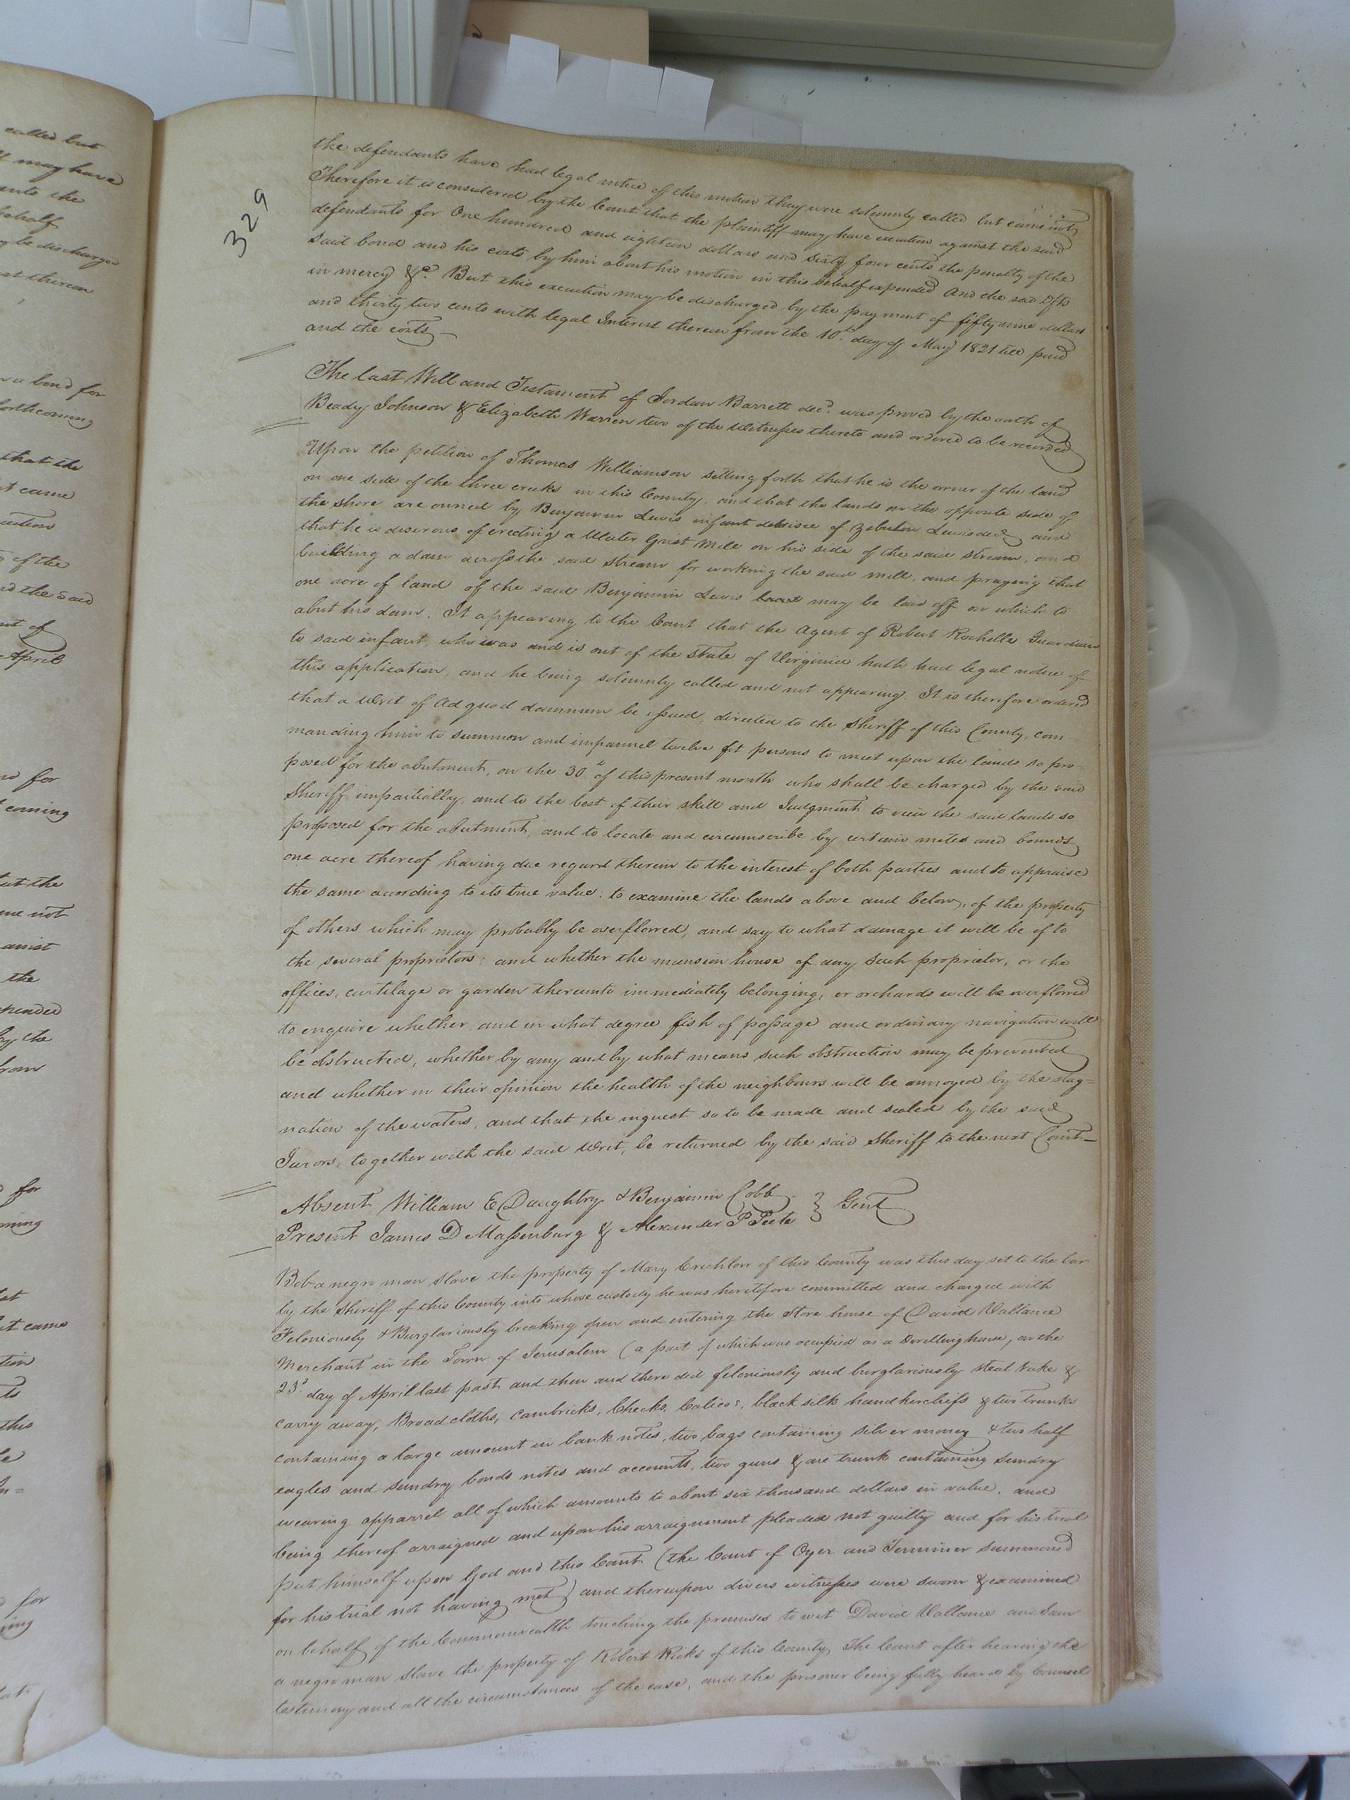 329
the defendants have had legal notice of this motion they were solemnly called but came not,
Therefore it is considered by the Court that the plaintiff may have execution against the said
defendants for One hundred and eighteen dollars and Sixty four cents the penalty of the
said bond and his costs by him about his motion in this behalf expended And the said Defts
in mercy &c. But this execution may be discharged by the payment of fifty nine dollars
and thirty two cents with legal Interest thereon from the 10th day of May 1821 till paid
and the costs
The last Will and Testament of Jordan Barrett decd. was proved by the oath of
Beady Johnson & Elizabeth Warren two of the witnesses thereto and ordered to be recorded
Upon the petition of Thomas Williamson setting forth that he is the owner of the land
on one side of the three creeks in this County, and that the lands on the opposite side of
the shore are owned by Benjamin Lewis infant devisee of Zebulon Lewis decd, and
that he is desirous of erecting a Water Grist Mill on his side of the said Stream, and
building a dam across the said Stream for working the said mill, and praying that
one acre of land off the said Benjamin Lewis may be laid off on which to
abut his dam. It appearing to the Court that the Agent of Robert Rochelle Guardian
to said infant, who was and is out of the State of Virginia hath had legal notice of
this application, and he being solemnly called and not appearing. It is therefore ordered
that a Writ of Ad quod damnum be issued, directed to the Sheriff of this County, com-
manding him to summon and impannel twelve fit persons to meet upon the lands so pro-
posed for the abutment, on the 30th of this present month who shall be charged by the said
Sheriff impartially, and to the best of their skill and Judgment to view the said lands so
proposed for the abutment, and to locate and circumscribe by certain metes and bounds
one acre thereof having due regard therein to the interest of both parties and to appraise
the same according to its true value, to examine the lands above and below, of the property
of others which may probably be overflowed, and say to what damage it will be of to
the several proprietors; and whether the mansion house of any such proprietor, or the
offices, curtilage or garden thereunto immediately belonging, or orchards will be overflowed
to enquire whether, and in what degree fish of passage and ordinary navigation will
be obstructed, whether by any and by what means such obstruction may be prevented
and whether in their opinion the health of the neighbours will be annoyed by the stag-
nation of the waters, and that the inquest so to be made and sealed by the said
Jurors, together with the said Writ, be returned by the said Sheriff to the next Court
Absent William E Daughtry & Benjamin Cobb } Gent
Present James D Massenburg & Alexander P Peete
Bob a negro man slave the property of Mary Crichton of this County was this day set to the bar
by the Sheriff of this County into whose custody he was heretofore committed and charged with
Feloniously & Burglariously breaking open and entering the store house of David Vallance
Merchant in the Town of Jerusalem (a part of which was occupied as a dwelling house, on the
23d day of April last past and then and there did feloniously and burglariously steal take &
carry away, Broad cloths, cambricks, Checks, Calicos, black silk handkerchiefs & two trunks
containing a large amount in bank notes, two bags containing silver money & two half
eagles and sundry bonds notes and accounts, two guns & one trunk containing sundry
wearing apparrel all of which amounts to about six thousand dollars in value, and
being thereof arraigned and upon his arraignment pleaded not guilty and for his trial
put himself upon God and this Court (the Court of Oyer and Terminer summoned
for his trial not having met) and thereupon divers witnesses were sworn & examined
on behalf of the Commonwealth touching the premises to wit David Vallance and Sam
a negro man slave the property of Robert Ricks of this County, The Court after hearing the
testimony and all the circumstances of the case, and the prisoner being fully heard by Counsel